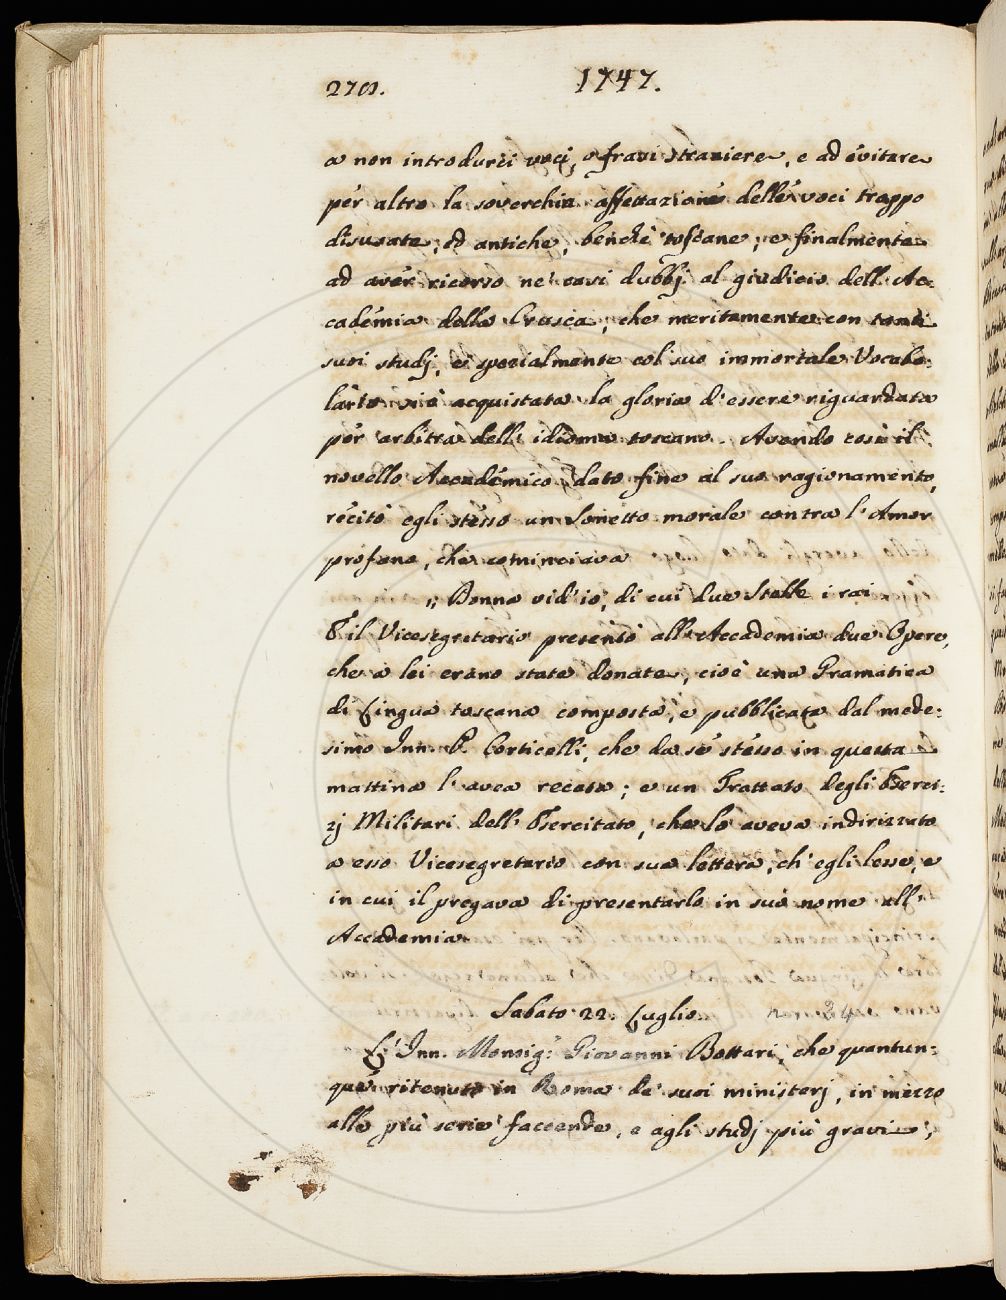 270. 1747.
a non introdurci voci, o frasi straniere, e ad evitare
per altro la soverchia affettazione delle voci troppo
disusate, ed antiche, benchè toscane, e finalmente
ad aver ricorso ne' casi dubbj al giudicio dell' Ac=
cademia della Crusca, che meritamente con tanti
suoi studj, e spezialmente col suo immortale Vocabo=
lario si è acquistata la gloria d'essere riguardata
per arbitra dell' idioma toscano. Avendo così il
novello Accademico dato fine al suo ragionamento,
recitò egli stesso un Sonetto morale contra l'Amor
profano, che cominciava
„ Donna vid' io, di cui due Stelle i rai
E il Vicesegretario presentò all' Accademia due Opere,
che a lei erano state donate, cioè una Gramatica
di Lingua toscana composta, e pubblicata dal mede=
simo Inn. P. Corticelli, che da sè stesso in questa
mattina l'avea recata; e un Trattato degli Eserci=
zj Militari dell' Esercitato, che lo aveva indirizzato
a esso Vicesegretario con sua lettera, ch' egli lesse, e
in cui il pregava di presentarlo in suo nome all'
Accademia.
Sabato 22. Luglio
L'Inn. Monsig. Giovanni Bottari, che quantun=
que ritenuto in Roma da' suoi ministerj, in mezzo
alle più serie faccende, e agli studj più gravi,